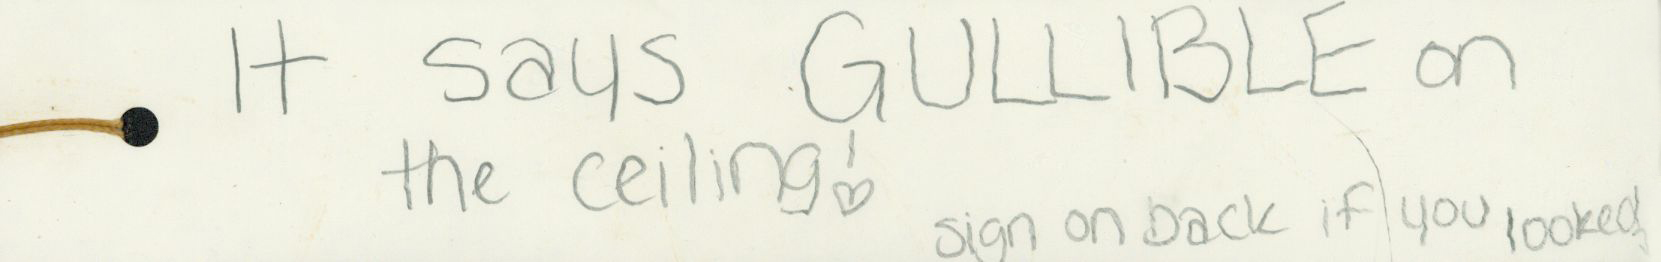 It says GULLIBLE on
the ceiling!
sign on back if you looked!